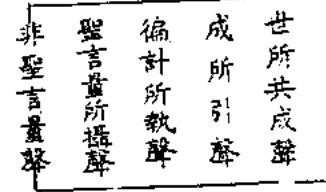 世所共成聲
成所引聲
徧計所執聲
聖言量所攝聲
非聖言量聲